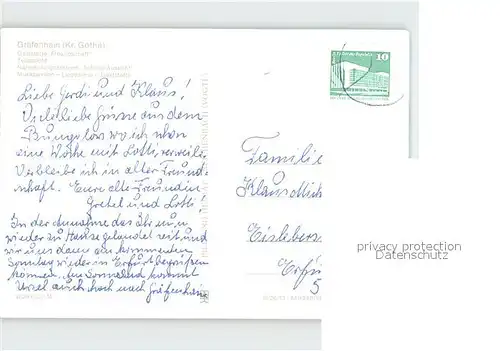 Gräfenhain (Kr. Gotha)
Gaststätte „Freundschaft"
Liebe Gerdi und Klaus!
Viele liebe Grüsse aus dem
Bungalow wo ich schon
eine Woche mit Lotti verweile.
Verbleibe ich in alter Freund-
schaft. Eure alte Freundin
Gretel und Lotti
In der Annahme das Ihr nun
wieder zu Hause gelandet seit, und
wir uns dann am kommenden
Sonntag wieder in Erfurt begrüßen
können. Am Sonnabend kommt
Ursel auch noch nach Gräfenhain
10
Familie
Klaus
Eisleber
Erfu
5
privacy protection
Datenschutz